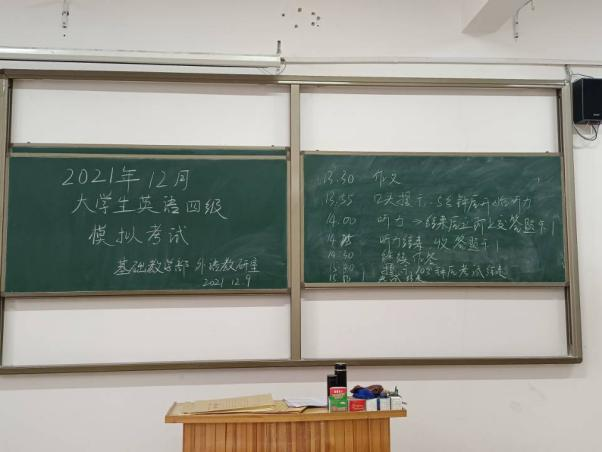 2021年12月
大学生英语四级
模拟考试
基础教学部 外语教研室
2021.12.9
13.30 作文
13.55 口头提示:5分钟后开始听力
14.00 听力→结束后立即上交答题卡1
听力结束 收答题卡1
14.30 继续作答
提示10分钟后考试结束